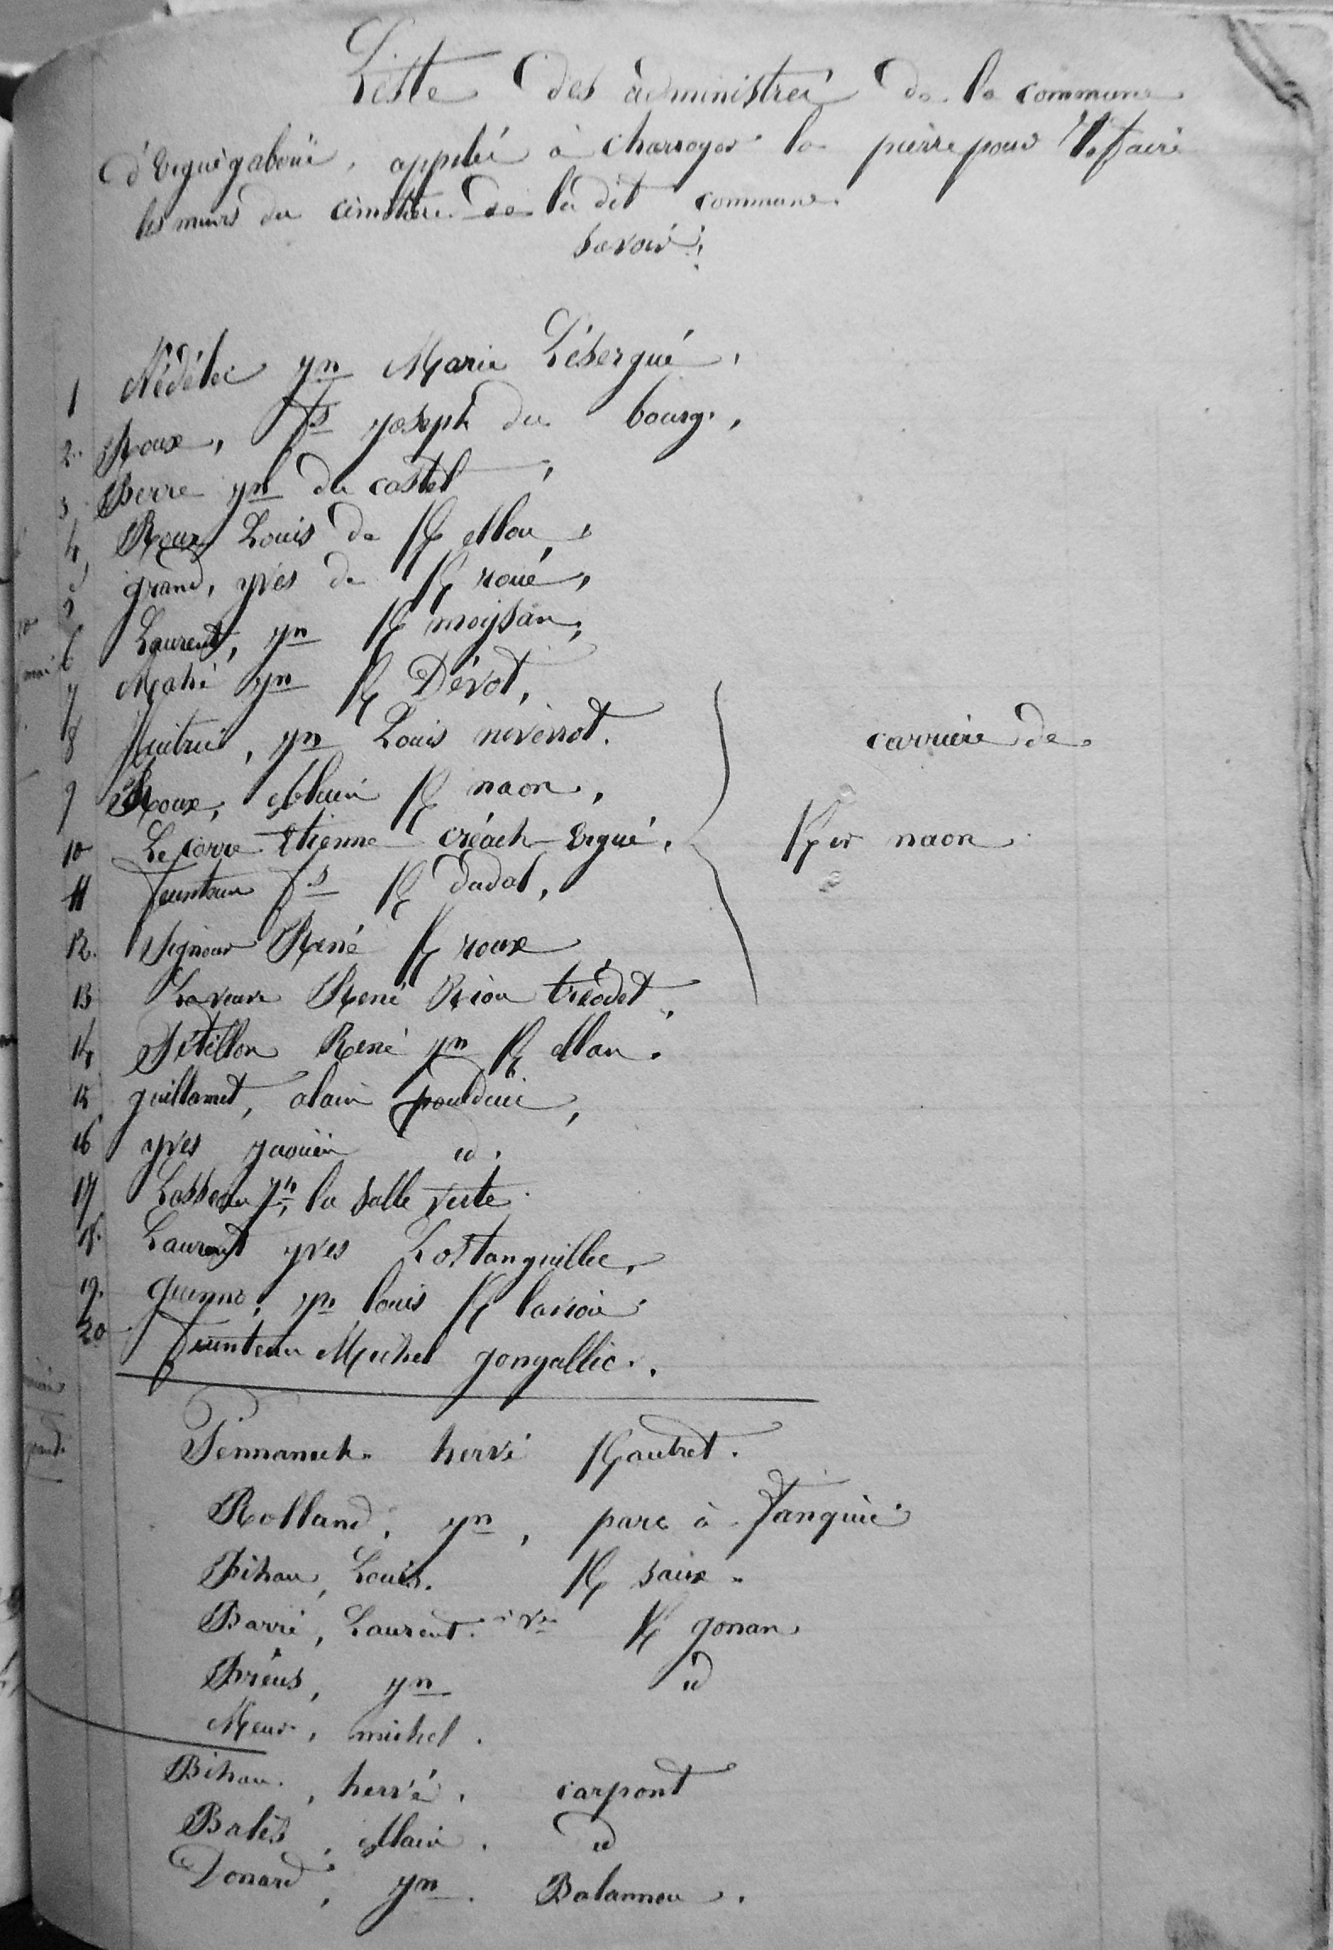 Liste des administrés de la commune
d'Erguégabéric, appelés à charroyer la pierre pour refaire
les murs du cimetière de la dit commune
savoir;
1 Nédélec yn Marie Lésergué,
2. Roux, fs joseph du bourg,
3 Berre yn du castel,
4 Roux Louis de K ellou,
5 grand, yves de K roué,
6 Laurent, yn K moysan,
7 Mahé yn K Dévot,
8 yn Louis niverrot.
9 Roux, Allain K naon,
carrière de
Ker naon
10 Le corre Etienne créach-Ergué,
11 feunteun fs K dudal,
12. Signour René K roux
13 La veuve René Riou tréodet,
14 Pétillon René yn K ellan.
15 guillamet, alain poulduic,
16 yves yaouën id.
17 Lasseau jh, la salle verte.
18. Laurent yves Lostanguillec,
19. Quenno, yn louis K laviou
20 feunteun Michel gongallic.
Pennanech hervé Kautret.
Rolland, yn, parc à tanguic
Bihan, Louis. K saux.
Barré, Laurent. K gonan
Préus, yn id
Meur, michel.
Bihan, hervé, carpont
Balès, Allain. id
Donard, yn. Balannou.